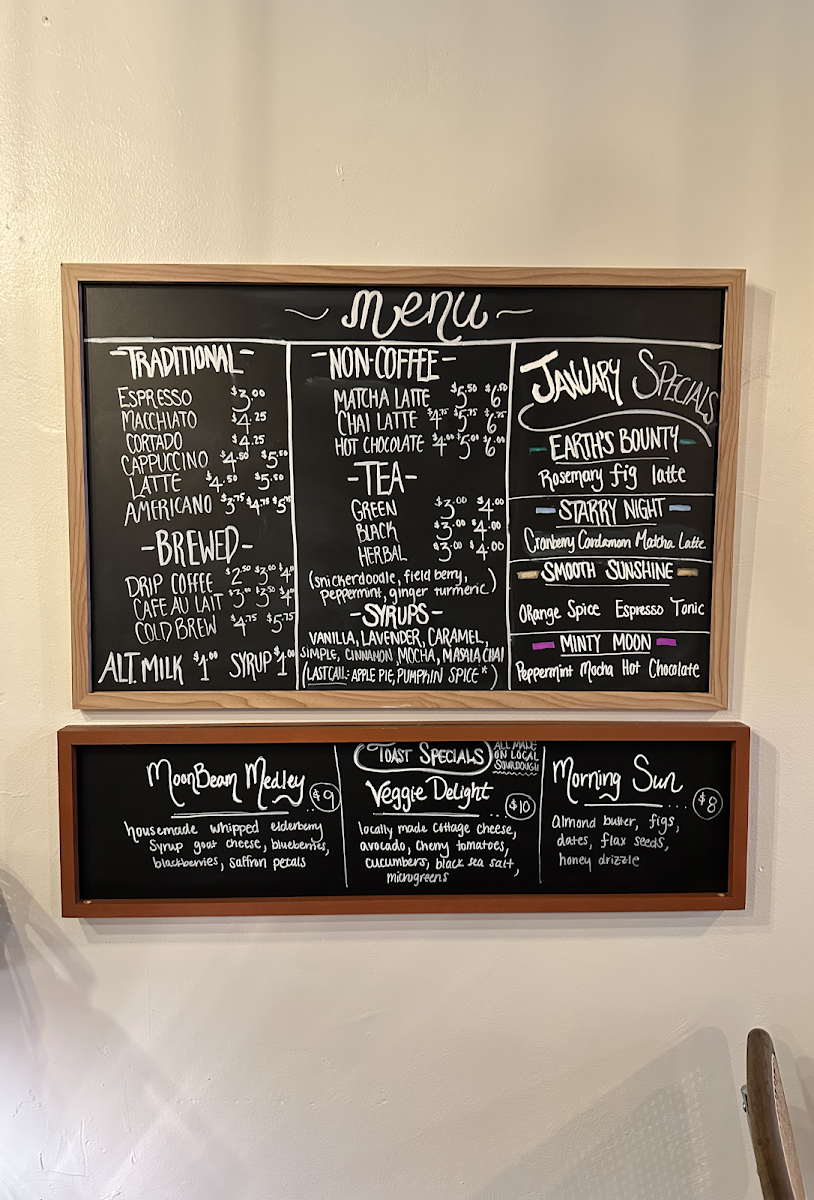 menu
-TRADITIONAL-
ESPRESSO $3.00
MACCHIATO $4.25
CORTADO $4.25
CAPPUCCINO $4.50 $5.50
LATTE $4.50 $5.50
AMERICANO $3.75 $4.75 $5
-BREWED-
DRIP COFFEE $2.50 $3.00 $4
CAFE AU LAIT $3.00 $3.50 $4
COLD BREW $4.75 $5.75
ALT. MILK $1.00 SYRUP $1.00
-NON-COFFEE-
MATCHA LATTE $5.50 $6.50
CHAI LATTE $4.75 $5.75 $6.75
HOT CHOCOLATE $4.00 $5.00 $6.00
-TEA-
GREEN $3.00 $4.00
BLACK $3.00 $4.00
HERBAL $3.00 $4.00
(snickerdoodle, field berry,
peppermint, ginger turmeric)
-SYRUPS-
VANILLA, LAVENDER, CARAMEL,
SIMPLE, CINNAMON, MOCHA, MASALA CHAI
(LAST CALL: APPLE PIE, PUMPKIN SPICE*)
JANUARY SPECIALS
EARTH'S BOUNTY
Rosemary fig latte
STARRY NIGHT
Cranberry Cardamom Matcha Latte
SMOOTH SUNSHINE
Orange Spice Espresso Tonic
MINTY MOON
Peppermint Mocha Hot Chocolate
TOAST SPECIALS
ALL MADE
ON LOCAL
SOURDOUGH
MoonBeam Medley
.. $9
housemade whipped elderberry
syrup goat cheese, blueberries,
blackberries, saffron petals
Veggie Delight
.. $10
locally made cottage cheese,
avocado, cherry tomatoes,
cucumbers, black sea salt,
microgreens
Morning Sun
... $8
almond butter, figs,
dates, flax seeds,
honey drizzle